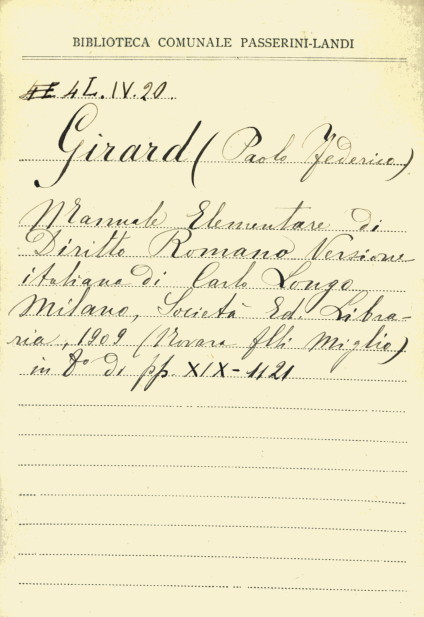 BIBLIOTECA COMUNALE PASSERINI-LANDI
4L.IV.20.
Girard (Paolo Federico)
Manuale Elementare di
Diritto Romano Versione
italiana di Carlo Longo
Milano, Società Ed. Libra-
ria, 1909 (Novara flli Miglio)
in 8° di pp. XIX-1121